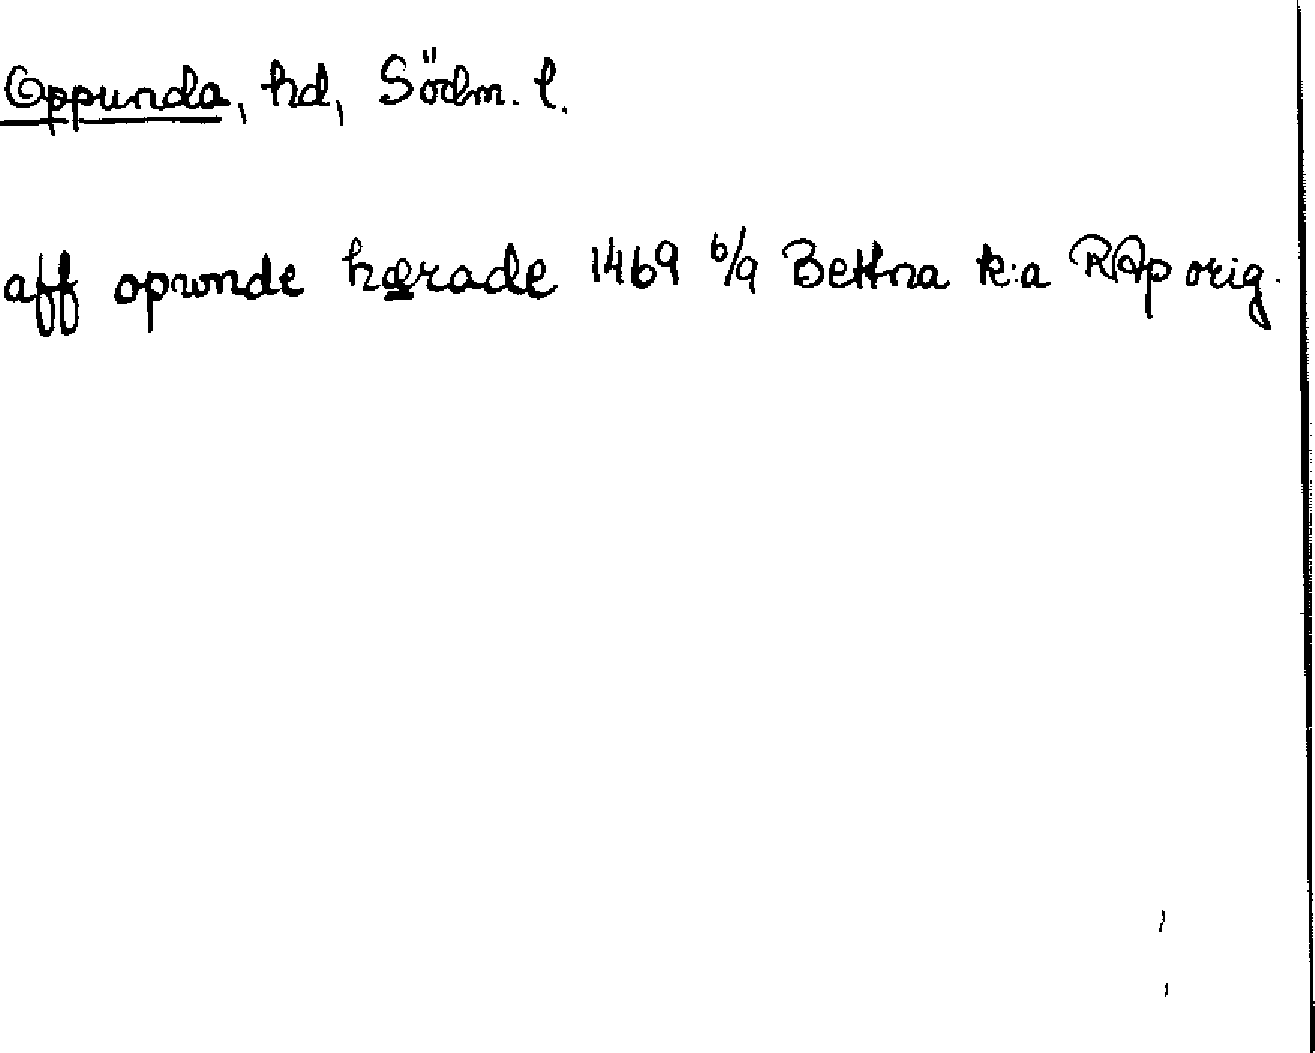 Oppunda, hd, Södm. l.
aff opwnde hærade 1469 6/9 Bettna k:a RAp orig.